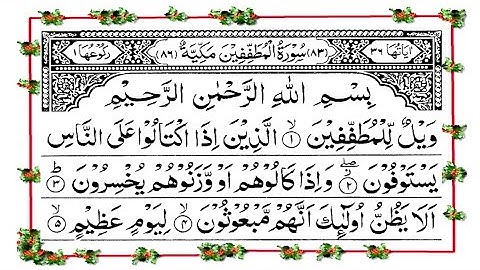 اٰيَاتُهَا ٣٦ (٨٣) سُوْرَةُ الْمُطَفِّفِيْنَ مَكِّيَّةٌ (٨٦) رُكُوْعُهَا ١
بِسْمِ اللّٰهِ الرَّحْمٰنِ الرَّحِيْمِ
وَيْلٌ لِّلْمُطَفِّفِيْنَ ۙ﴿١﴾ الَّذِيْنَ اِذَا اكْتَالُوْا عَلَى النَّاسِ
يَسْتَوْفُوْنَ ۖ﴿٢﴾ وَاِذَا كَالُوْهُمْ اَوْ وَّزَنُوْهُمْ يُخْسِرُوْنَ ؕ﴿٣﴾
اَلَا يَظُنُّ اُولٰٓئِكَ اَنَّهُمْ مَّبْعُوْثُوْنَ ۙ﴿٤﴾ لِيَوْمٍ عَظِيْمٍ ۙ﴿٥﴾